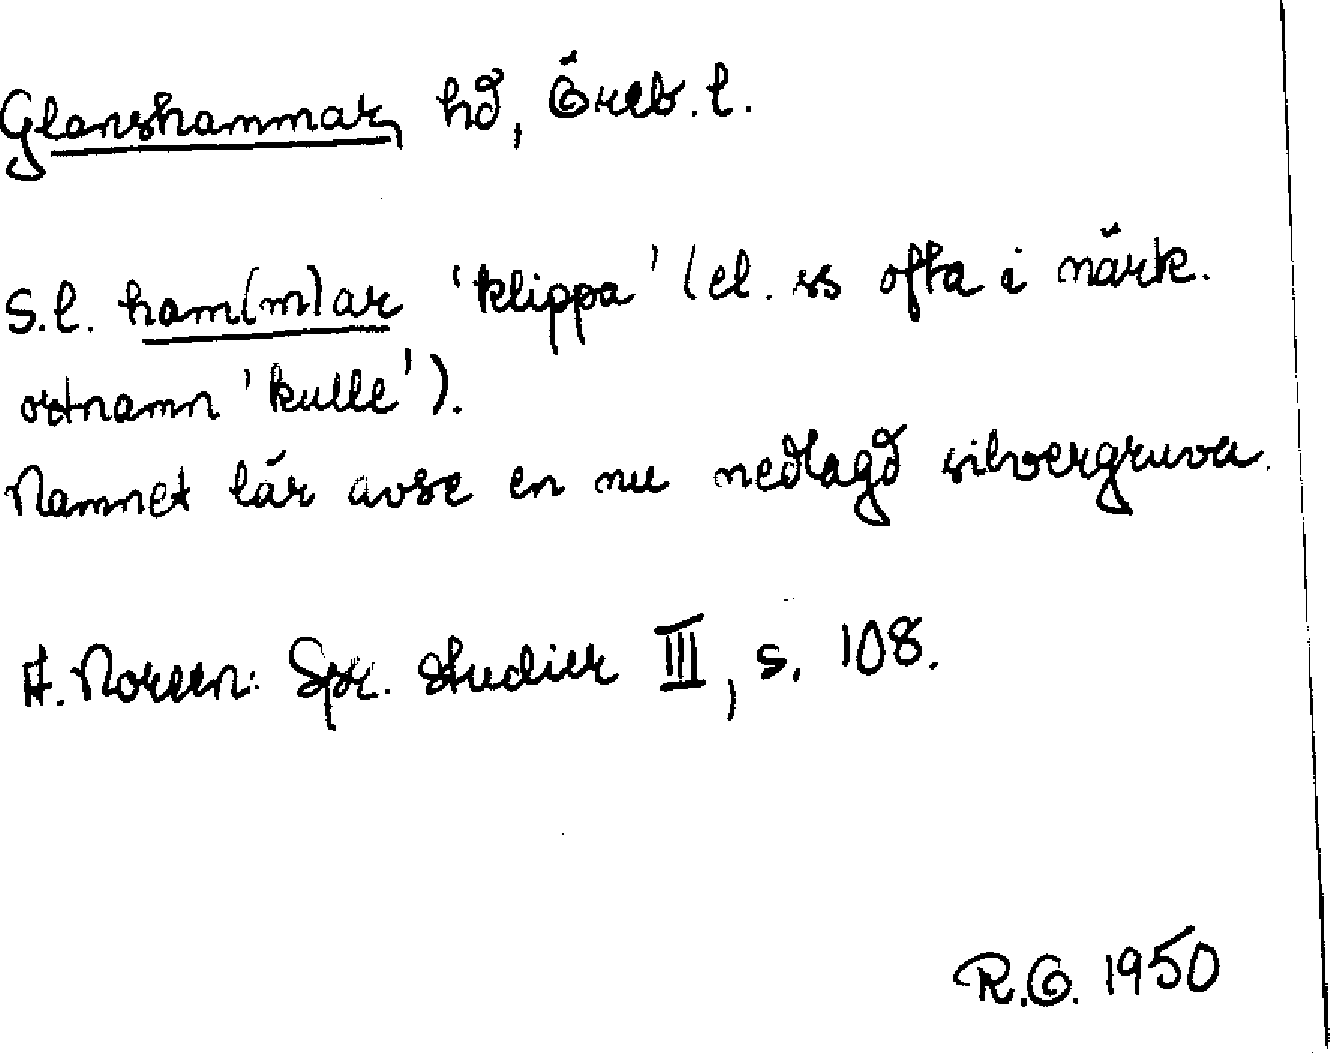 Glanshammar, hd, Öreb. l.
S.l. ham(m)ar 'klippa' (el. ss ofta i närk.
ortnamn 'kulle').
Namnet lär avse en nu nedlagd silvergruva.
A. Noreen: Spr. studier III, s. 108.
R.O. 1950